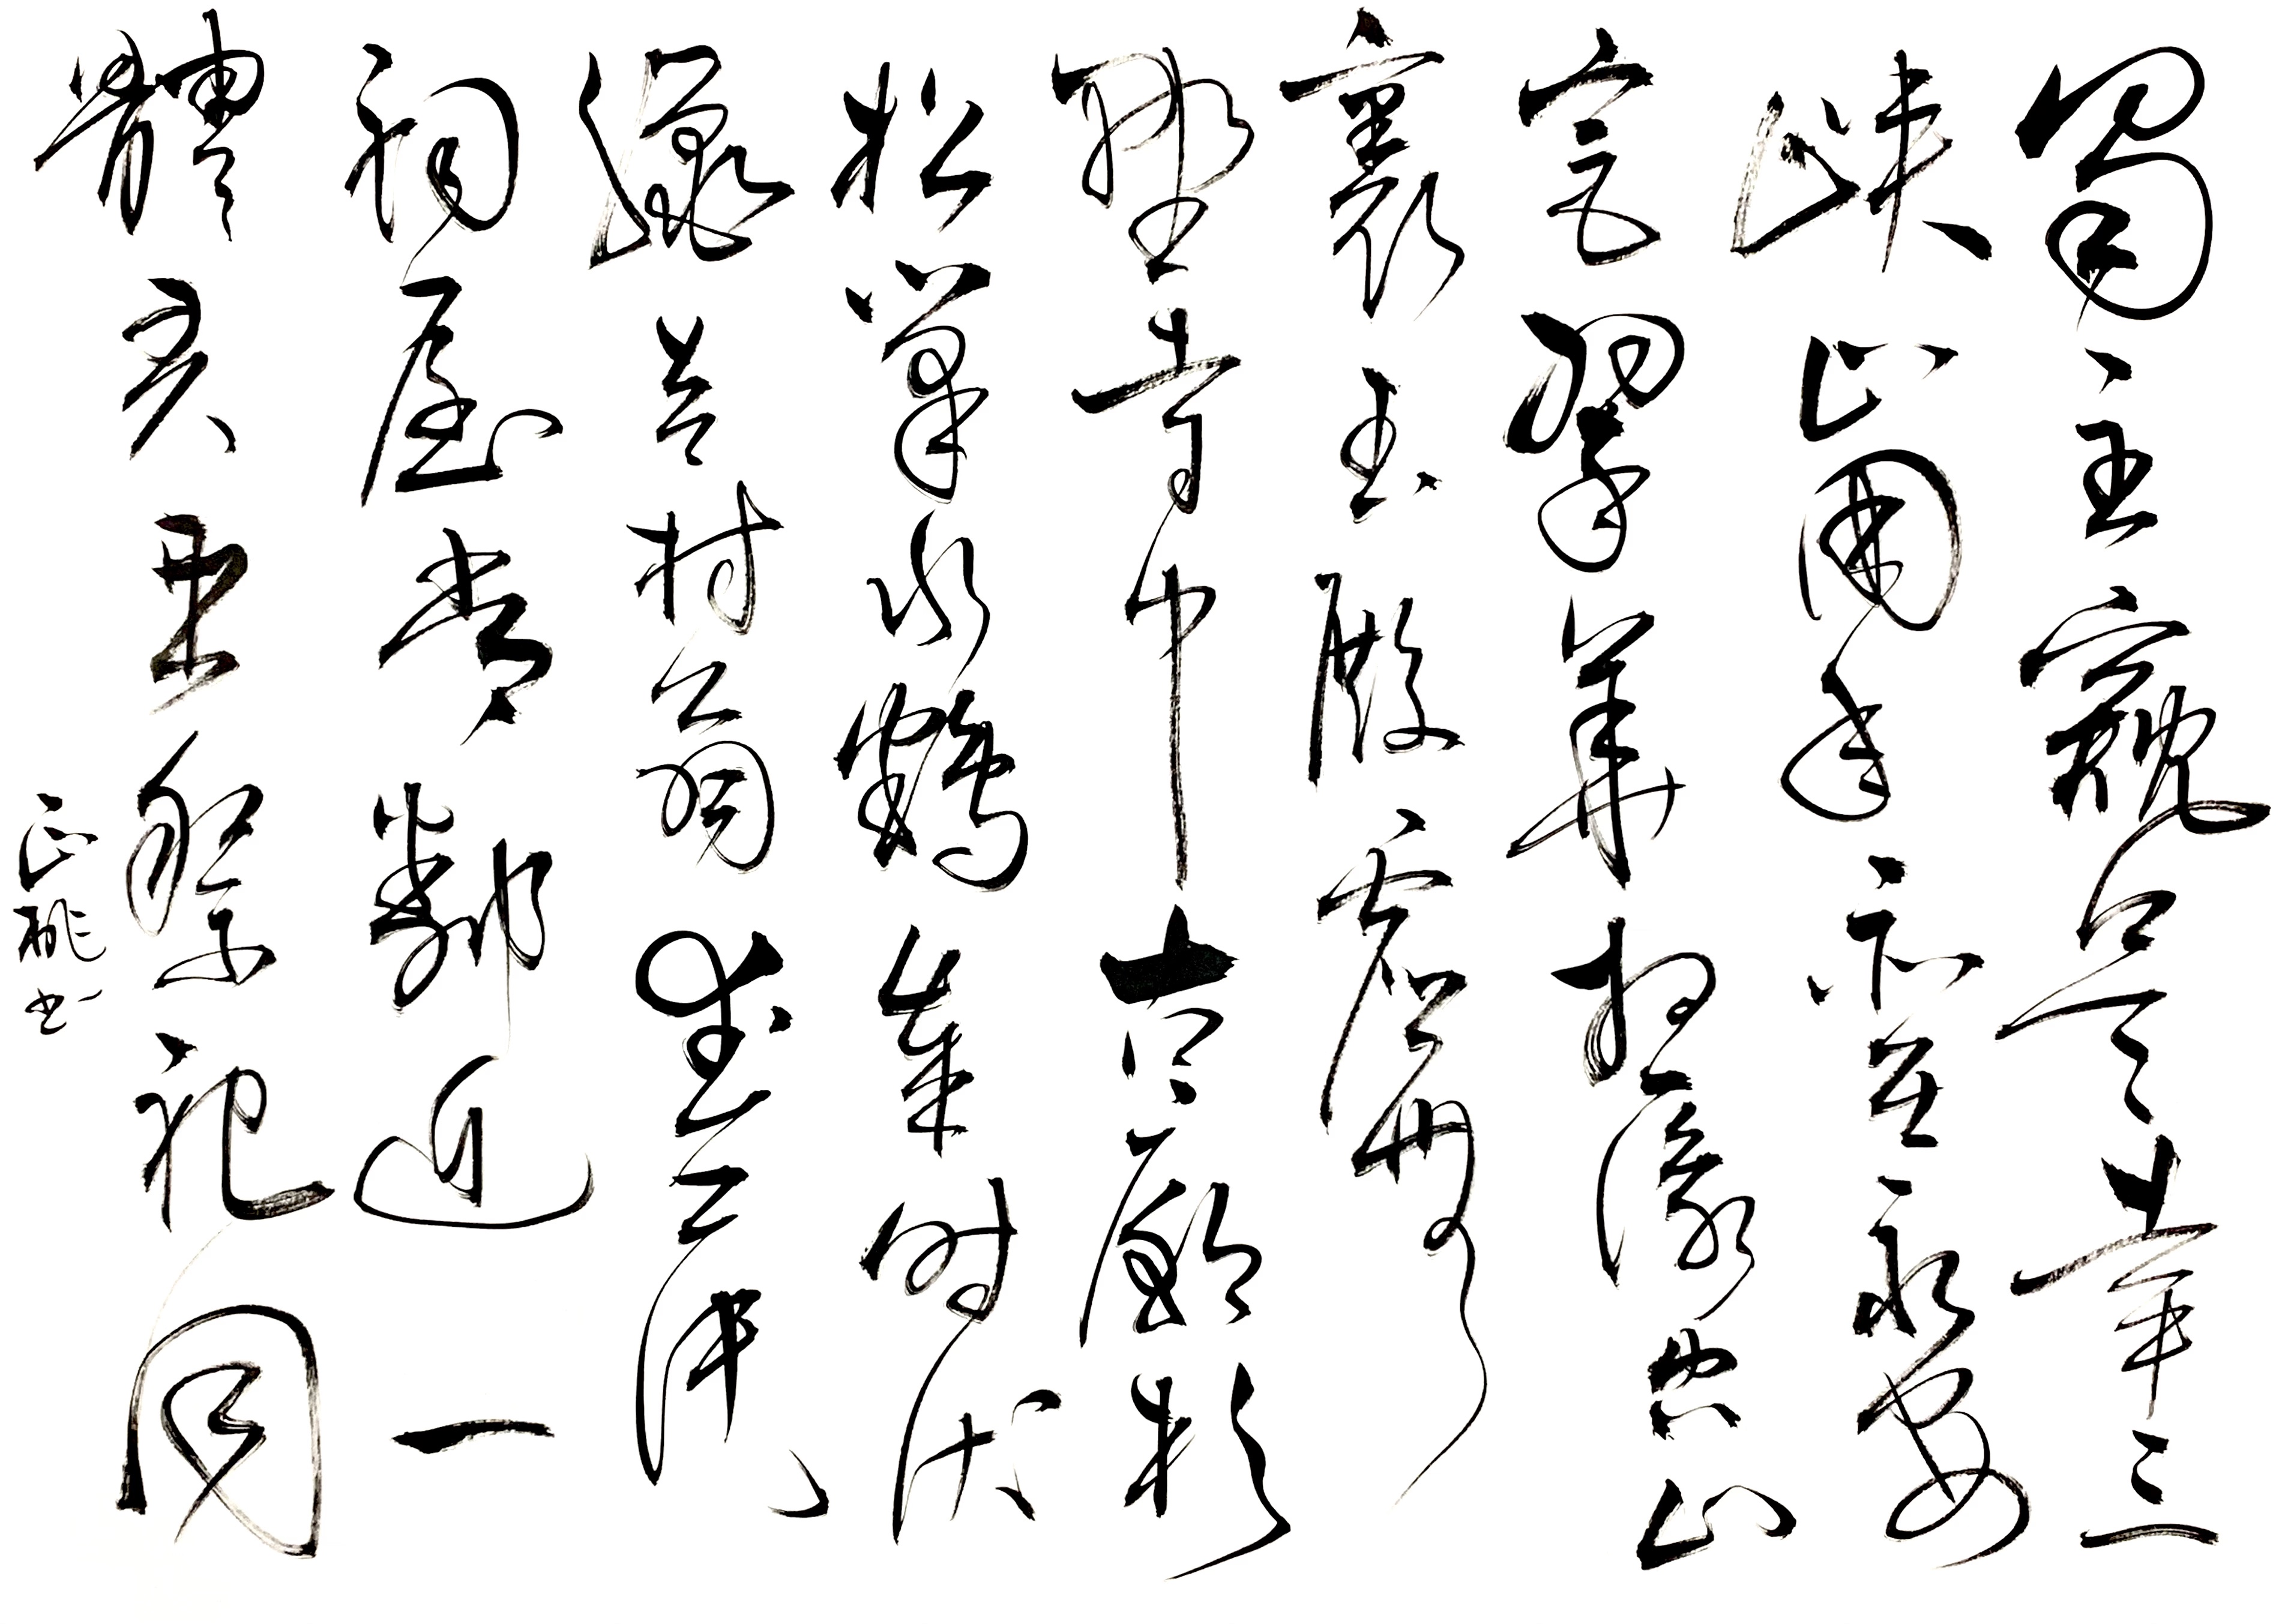 蜀主窺吳幸三
峽崩年亦在永安
宮翠華想像空山
裏玉殿虛無
野寺中古廟杉
松巢水鶴歲時伏
臘走村翁武侯
祠屋常鄰近一
體君臣祭祀同
正书